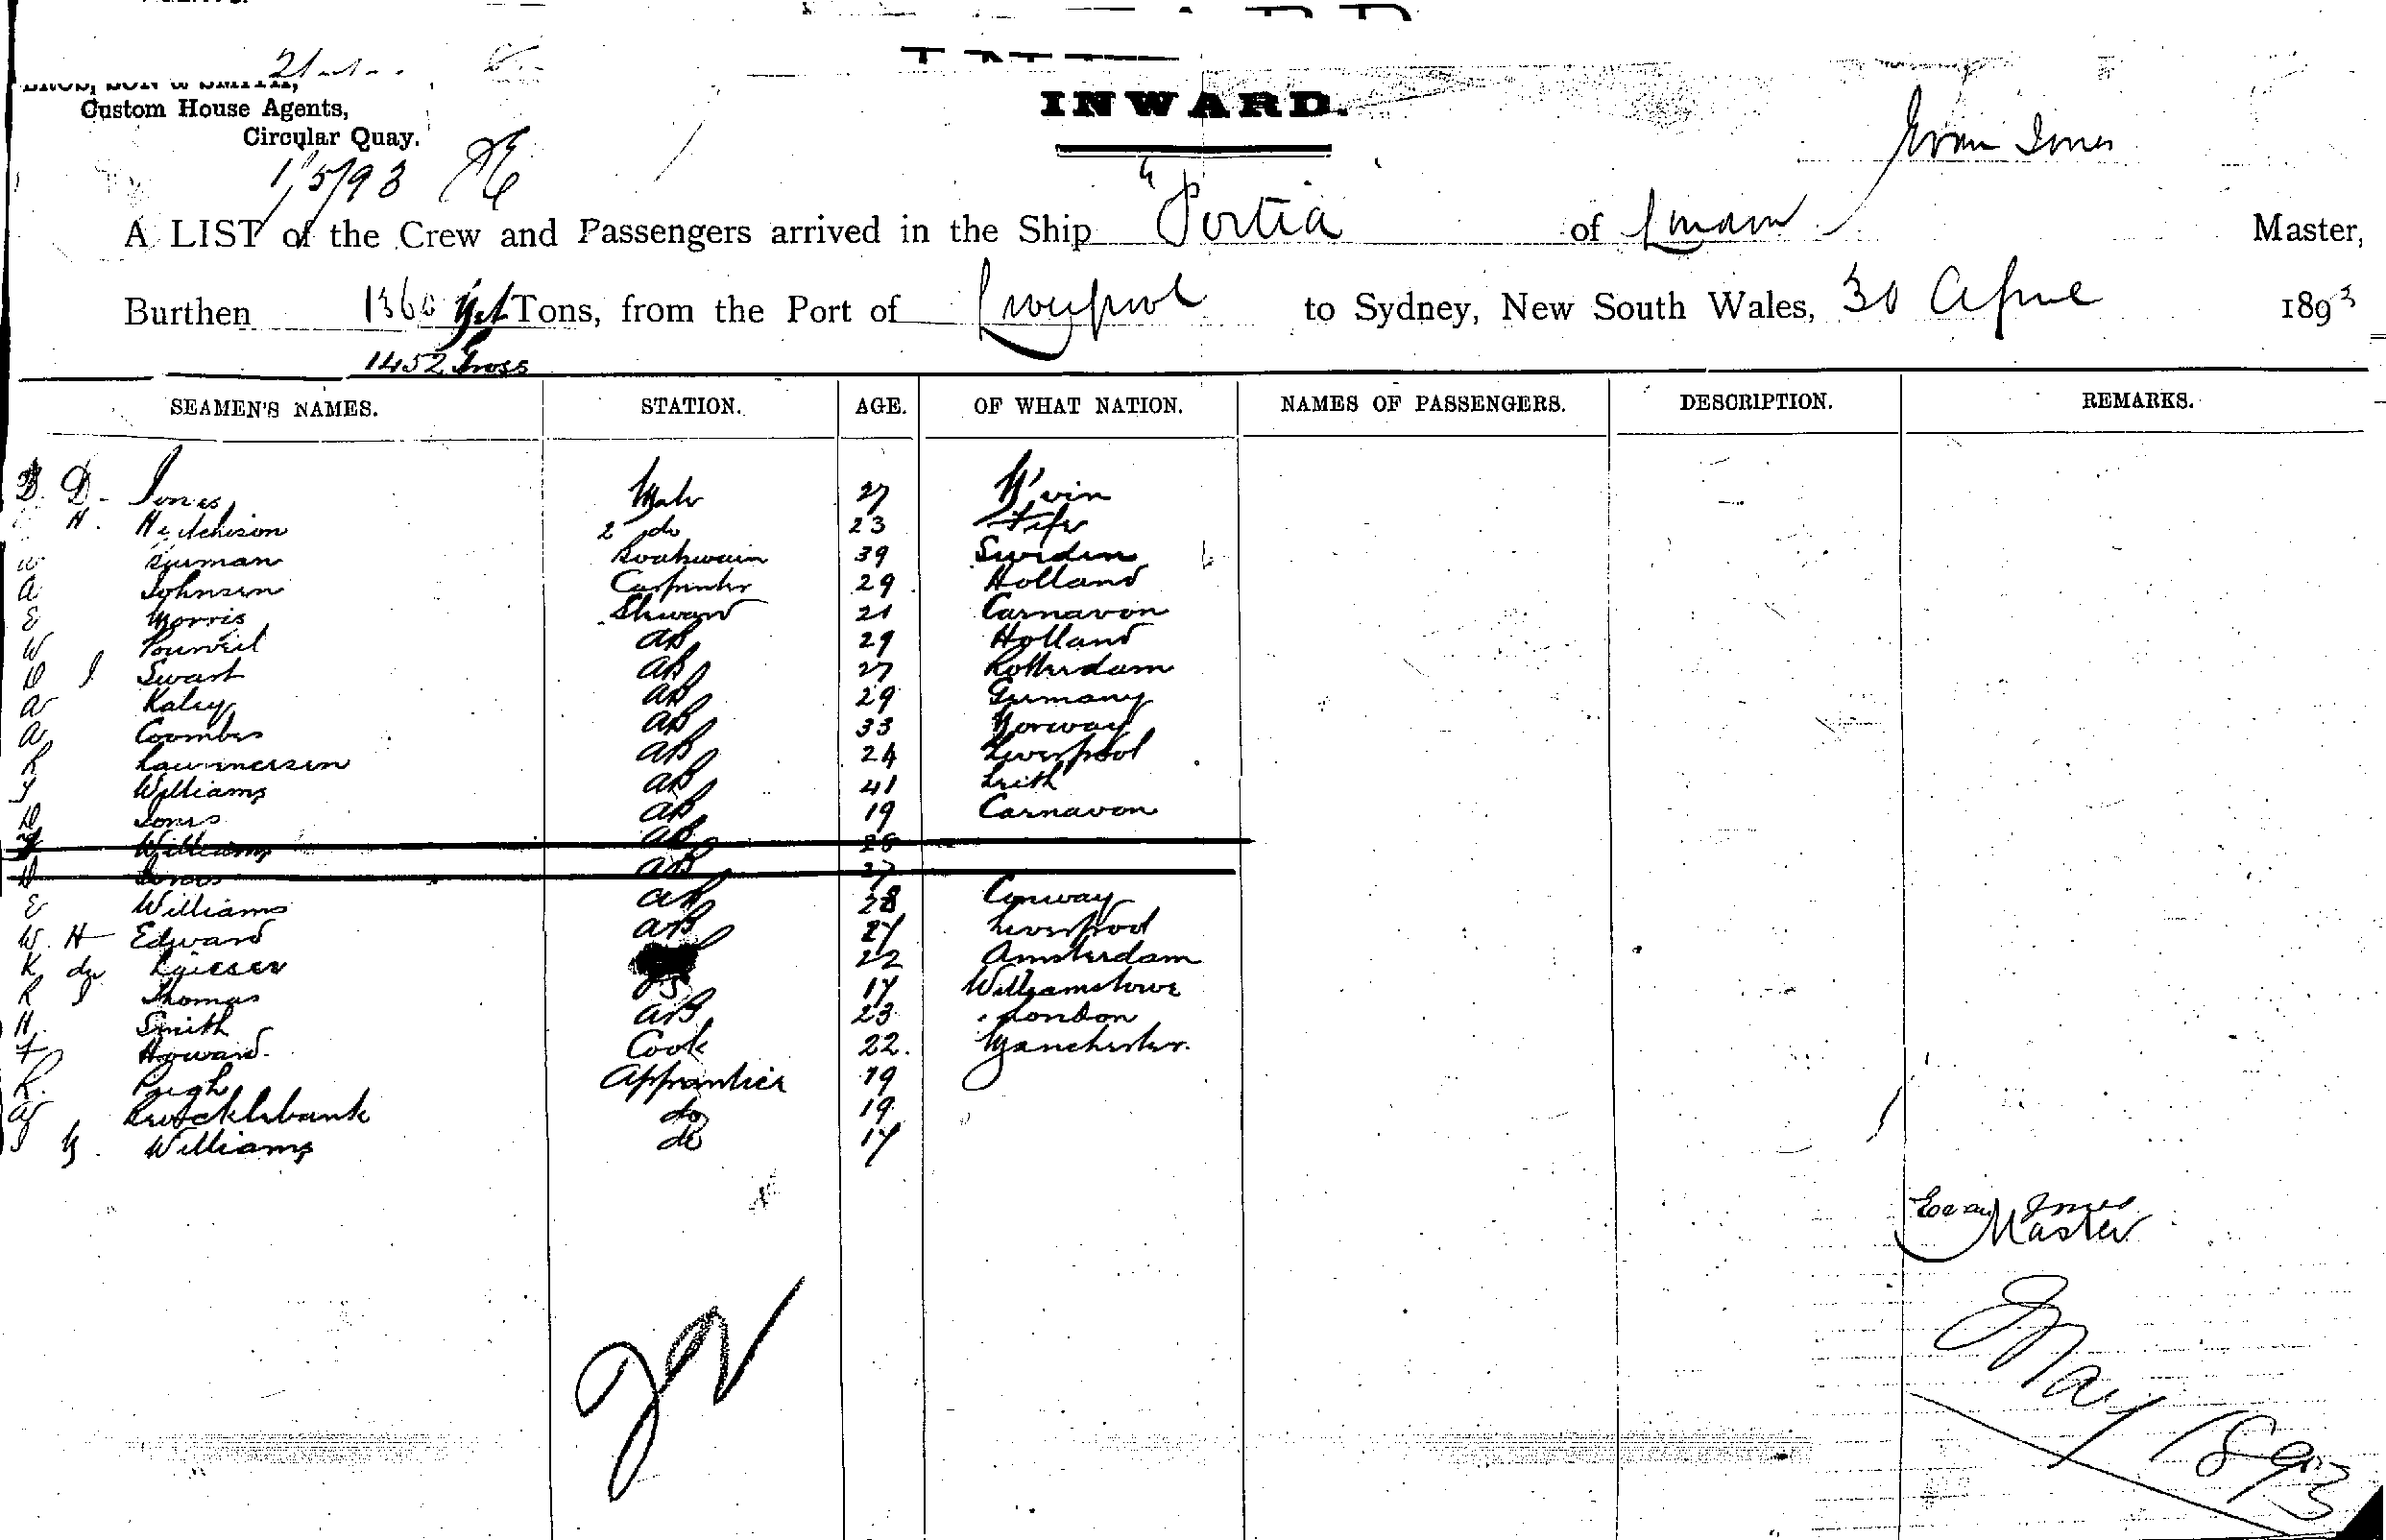 Custom House Agents,
Circular Quay.
1/5/93
INWARD.
Evan Jones
A LIST of the Crew and Passengers arrived in the Ship "Portia of Master,
Burthen 1360 Tons, from the Port of Liverpool to Sydney, New South Wales, 30 April 1893
1452 Gross
SEAMEN'S NAMES. STATION. AGE. OF WHAT NATION. NAMES OF PASSENGERS. DESCRIPTION. REMARKS.
D. Jones Mate 27 N'vin
H. Hutchison 2 do 23 Fife
Boatswain 39 Sweden
A Johnson Carpenter 29 Holland
E Morris Steward 21 Carnavon
W AB 29 Holland
D J Swart AB 27 Rotterdam
A Kaley AB 29 Germany
A Coombes AB 33 Norway
R AB 24 Liverpool
J Williams AB 41 Leith
D Jones AB 19 Carnavon
Williams AB 26
D Jones AB 27
E Williams AB 28 Conway
W. H Edward AB 27 Liverpool
K de 22 Amsterdam
R J Thomas OS 17 Williamstowe
H. Smith AB 23 London
F Howard. Cook 22. Manchester.
R. Pugh Apprentice 19
Brocklebank do 19
J G. Williams do 17
Evan Jones
Master
May 1893